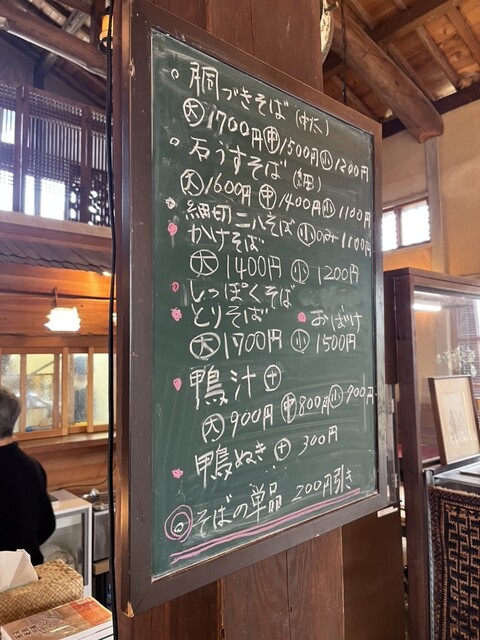 ○ 胴づきそば (中太)
大1700円 中1500円 小1200円
○ 石うすそば (細)
大1600円 中1400円 小1100円
○ 細切二八そば 小のみ1100円
かけそば
大1400円 小1200円
しっぽくそば
とりそば おばけ
大1700円 小1500円
鴨汁 +
大900円 中800円 小700円
鴨ぬき + 300円
◎ そばの単品 200円引き